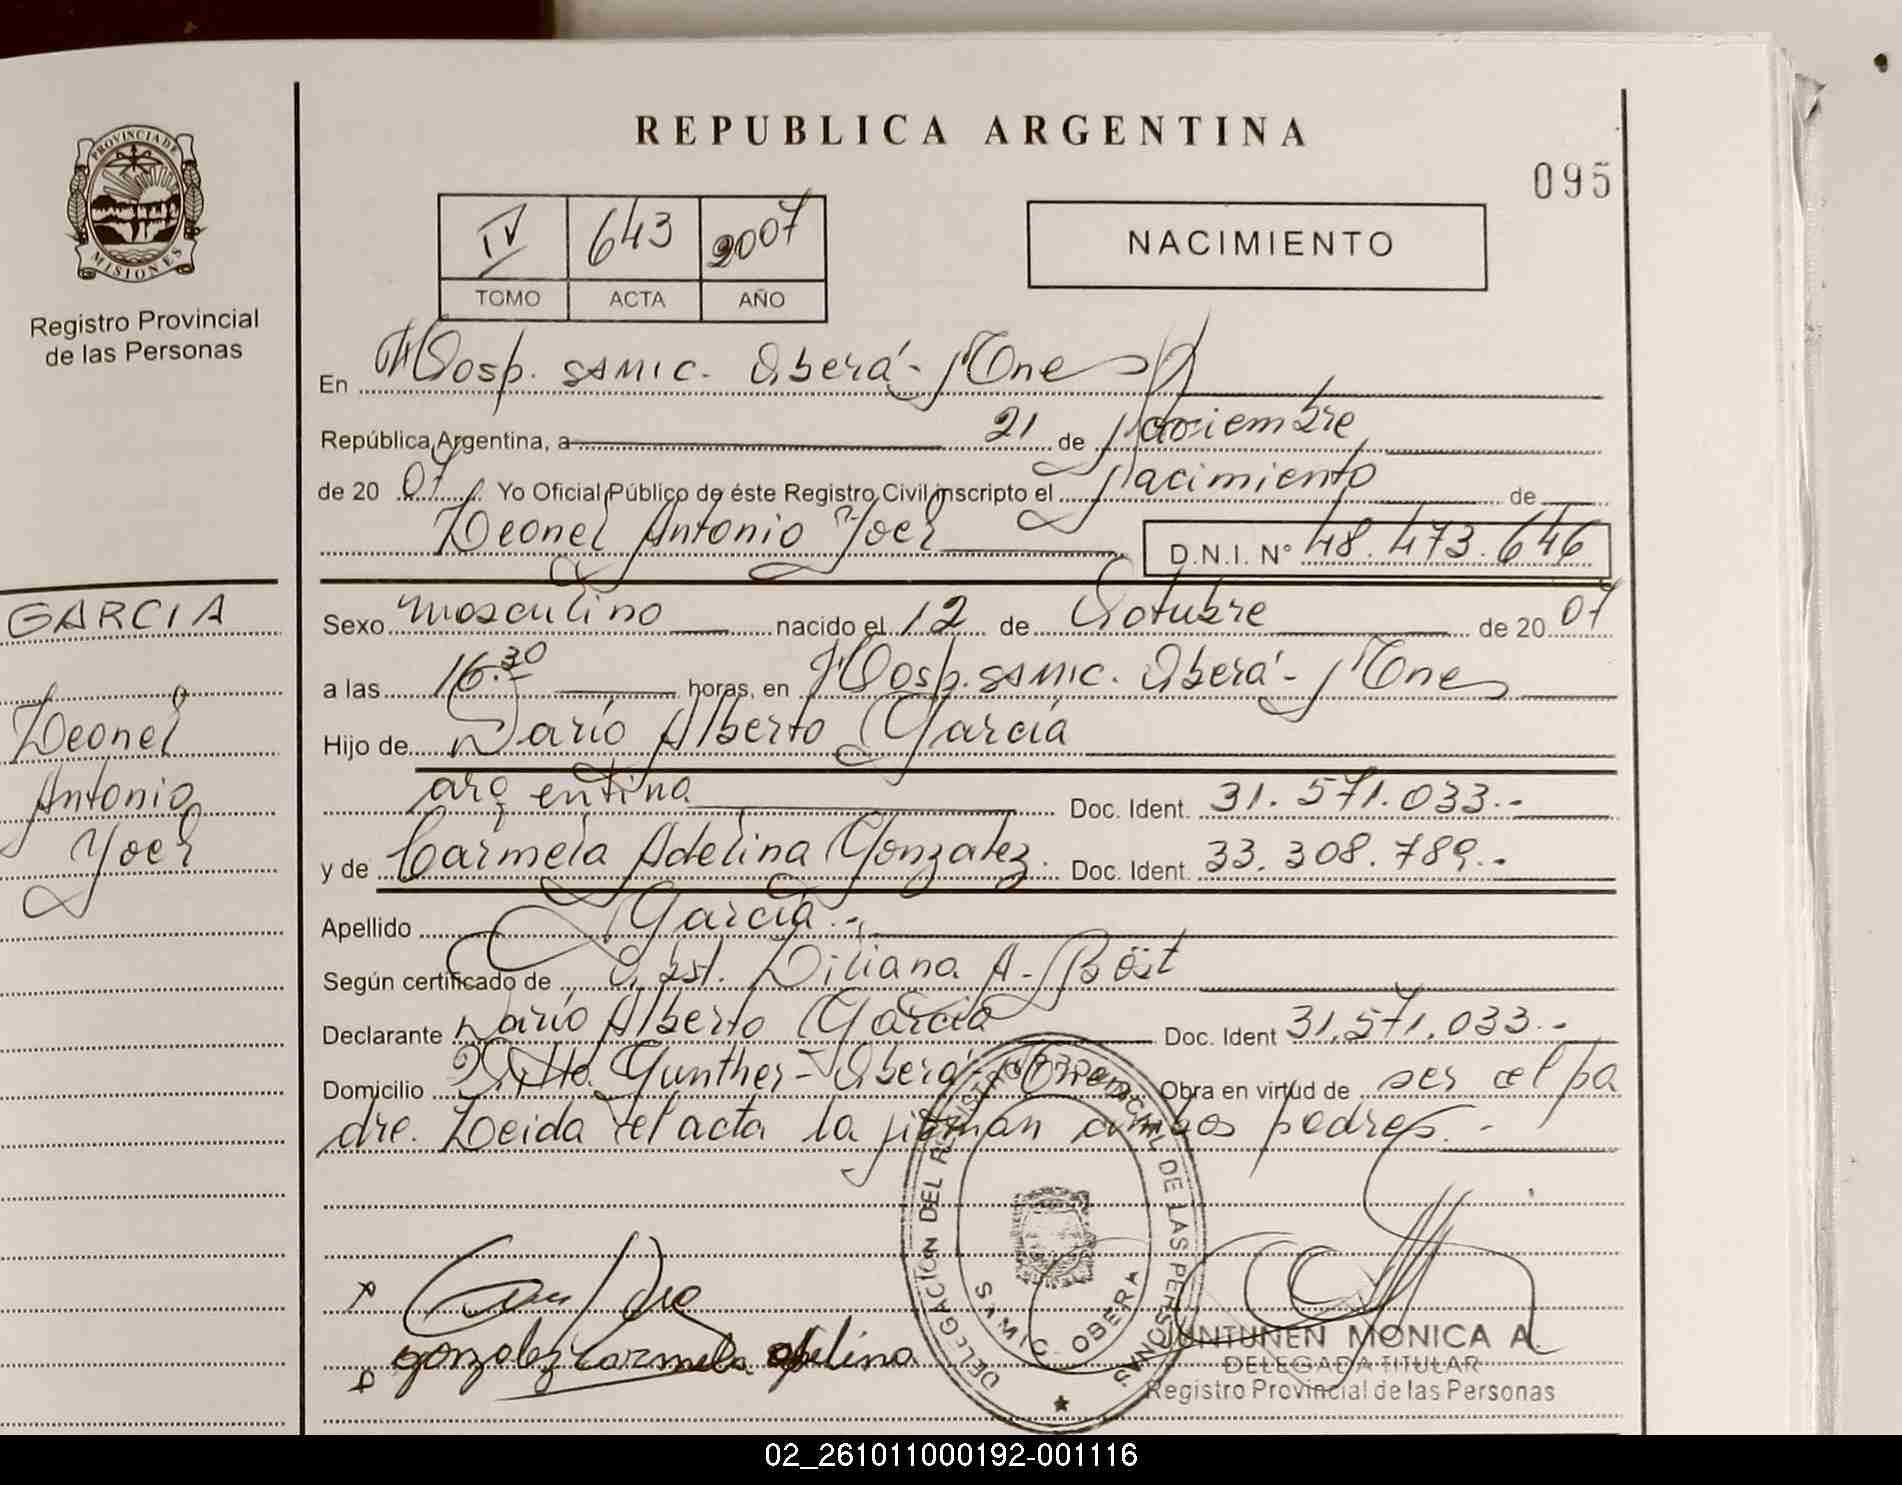 REPUBLICA ARGENTINA
095
PROVINCIA DE
MISIONES
Registro Provincial
de las Personas
IV 643 2007
TOMO ACTA AÑO
NACIMIENTO
En Hosp. SAMIC. Oberá - Mnes
República Argentina, a 21 de Noviembre
de 2007. Yo Oficial Público de éste Registro Civil inscripto el Nacimiento de
Leonel Antonio Yoel D.N.I. N° 48.473.646
GARCIA
Leonel
Antonio
Yoel
Sexo masculino nacido el 12 de Octubre de 2007
a las 16.30 horas, en Hosp. SAMIC. Oberá - Mnes
Hijo de Darío Alberto García
argentina Doc. Ident. 31.571.033.-
y de Carmela Adelina Gonzalez. Doc. Ident. 33.308.789.-
Apellido García.-
Según certificado de Obst. Liliana A. Böst
Declarante Darío Alberto García Doc. Ident 31.571.033.-
Domicilio Gunther - Oberá - Mnes Obra en virtud de ser el pa
dre. Leida el acta la firman ambos padres.-
DELEGACIÓN DEL REGISTRO PROVINCIAL DE LAS PERSONAS
SAMIC OBERA
gonzalez Carmela adelina
JUNTUNEN MONICA A.
DELEGADA TITULAR
Registro Provincial de las Personas
02_261011000192-001116